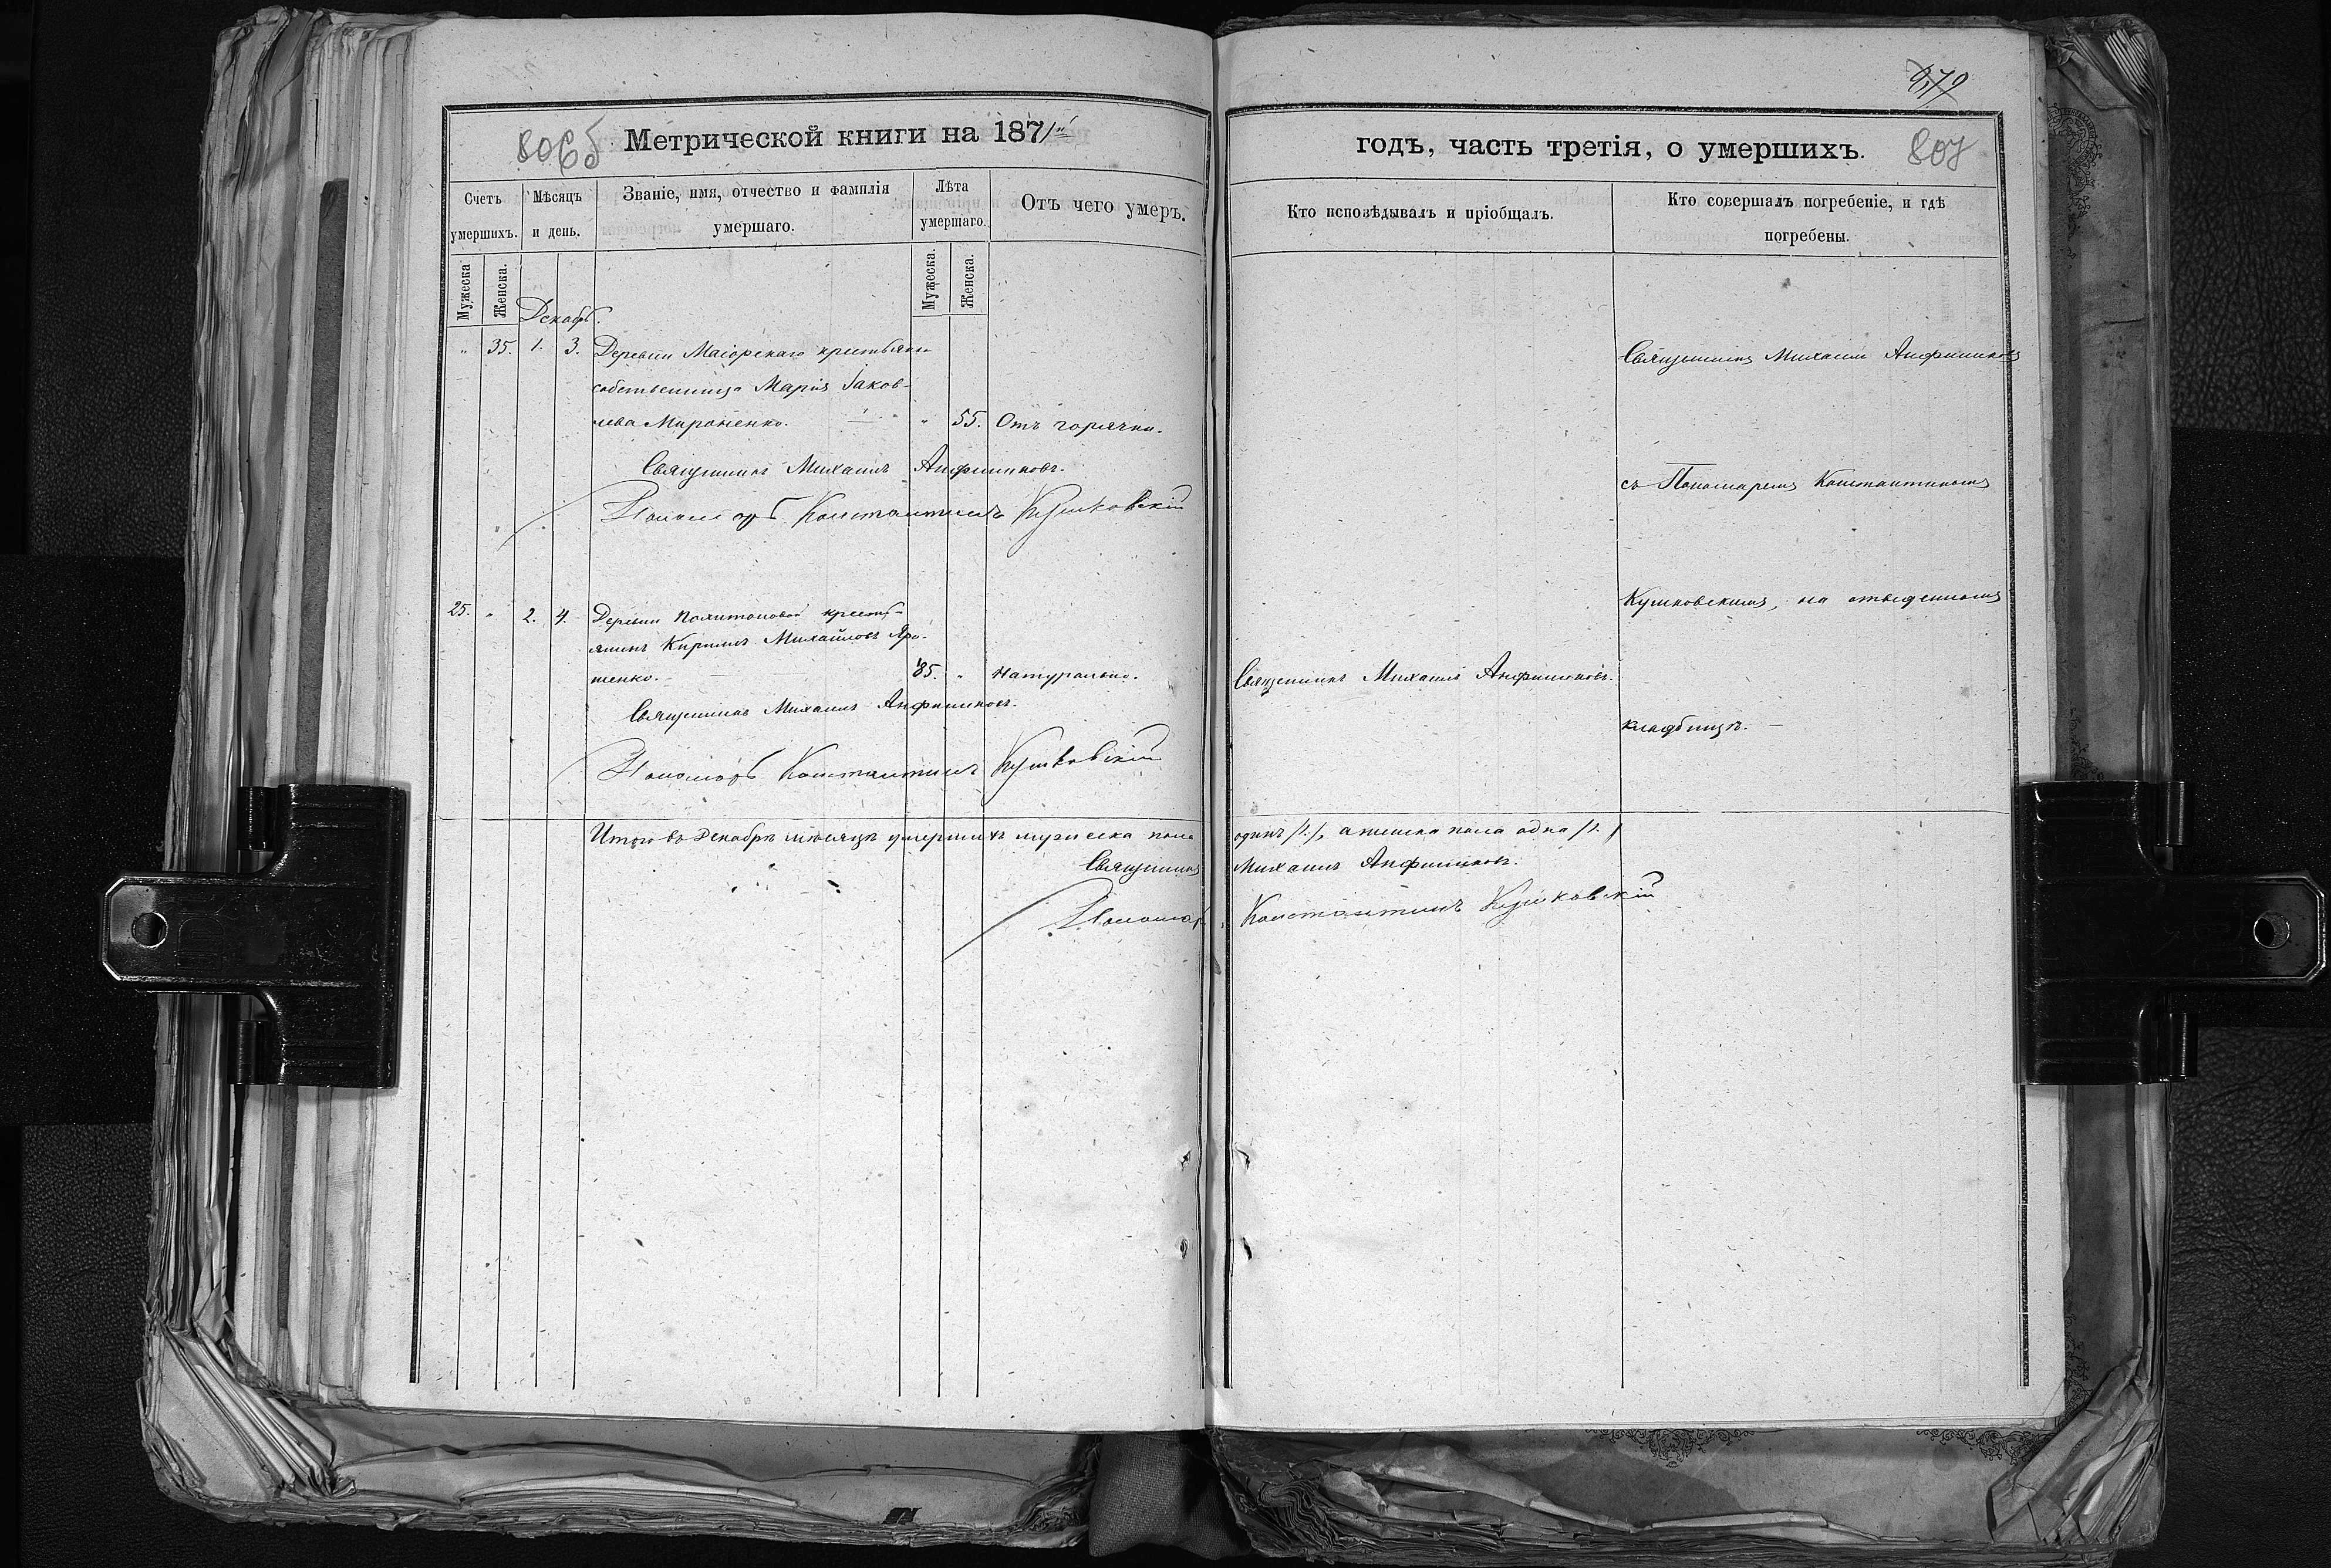 879
806б Метрической книги на 1871й годъ, часть третія, о умершихъ. 807
Счетъ умершихъ.
Мѣсяцъ и день.
Званіе, имя, отчество и фамилія умершаго.
Лѣта умершаго.
Отъ чего умеръ.
Кто исповѣдывалъ и пріобщалъ.
Кто совершалъ погребеніе, и гдѣ погребены.
Мужеска
Женска.
Мужеска.
Женска.
Декабрь.
" 35. 1. 3. Деревни Маіорскаго крестьянка
собственница Марія Іаков-
лева Мироненко. " 55. Отъ горячки.
Священникъ Михаилъ Анфиников.
Пономарь Константинъ Кушковскій
Священникъ Михаилъ Анфиниковъ
съ Пономаремъ Константиномъ
Кушковскимъ, на отведенномъ
кладбищѣ. —
25. " 2. 4. Деревни Политоповой кресть-
янинъ Кирилъ Михайловъ Яро-
шенко. 85. " Натурально. Священникъ Михаилъ Анфиниковъ.
Священникъ Михаилъ Анфиниковъ.
Пономарь Константинъ Кушковскій
Итого въ Декабрѣ мѣсяцѣ умершихъ мужеска пола одинъ /1./, а женска пола одна /1./
Священникъ Михаилъ Анфиниковъ.
Пономарь Константинъ Кушковскій